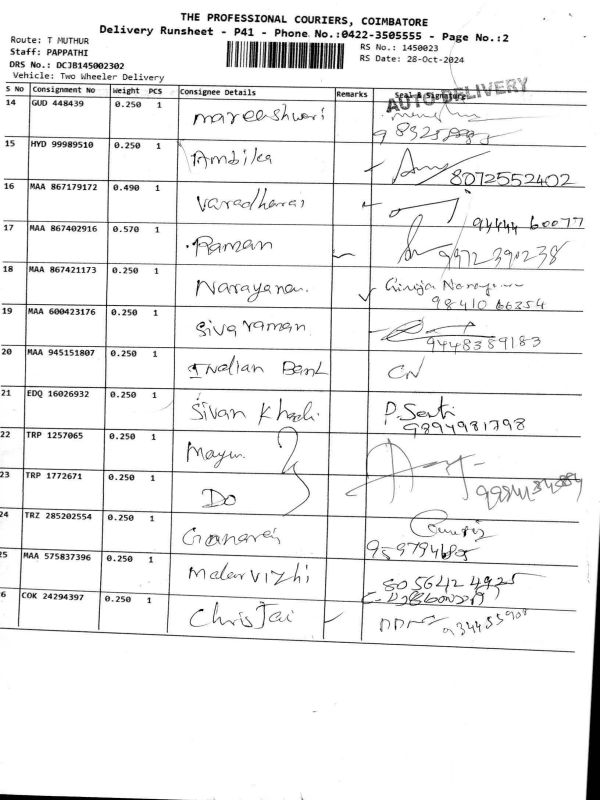 THE PROFESSIONAL COURIERS, COIMBATORE
Delivery Runsheet - P41 - Phone No.:0422-3505555 - Page No.:2
Route: T MUTHUR
RS No.: 1450023
Staff: PAPPATHI
RS Date: 28-Oct-2024
DRS No.: DCJB145002302
Vehicle: Two Wheeler Delivery
AUTO DELIVERY
S No Consignment No Weight PCS Consignee Details Remarks Seal & Signature
14 GUD 448439 0.250 1 mareeshwari
15 HYD 99989510 0.250 1 Ambika 8072552402
16 MAA 867179172 0.490 1 Varadharaj 94444 60077
17 MAA 867402916 0.570 1 Raman 9972390238
18 MAA 867421173 0.250 1 Narayanan Girija
98410 66354
19 MAA 600423176 0.250 1 Sivaraman 9448389183
20 MAA 945151807 0.250 1 Indian Bank
21 EDQ 16026932 0.250 1 Sivan
9894981798
22 TRP 1257065 0.250 1
23 TRP 1772671 0.250 1 Do
24 TRZ 285202554 0.250 1
25 MAA 575837396 0.250 1 Malarvizhi 805642 4925
26 COK 24294397 0.250 1 ChrisJai